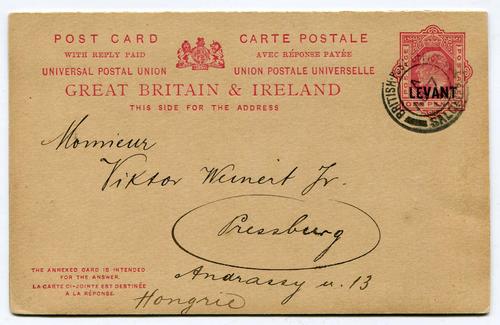 POST CARD CARTE POSTALE
WITH REPLY PAID AVEC RÉPONSE PAYÉE
UNIVERSAL POSTAL UNION UNION POSTALE UNIVERSELLE
GREAT BRITAIN & IRELAND
THIS SIDE FOR THE ADDRESS
LEVANT
ONE PENNY
BRITISH
Monsieur
Viktor Weinert Jr.
Pressburg
Andrassy u. 13
Hongrie
THE ANNEXED CARD IS INTENDED
FOR THE ANSWER.
LA CARTE CI-JOINTE EST DESTINÉE
À LA RÉPONSE.